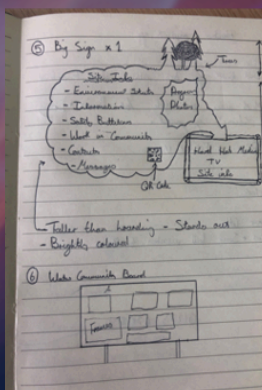 ⑤ Big Sign x 1
Trees
Site Info
- Environment
- Information
- Safety Bulletins
- Work in Community
- Contacts
- Messages
Photos
QR Code
TV
Site info
- Taller than hoarding - Stands out
- Brightly coloured
⑥ Community Board